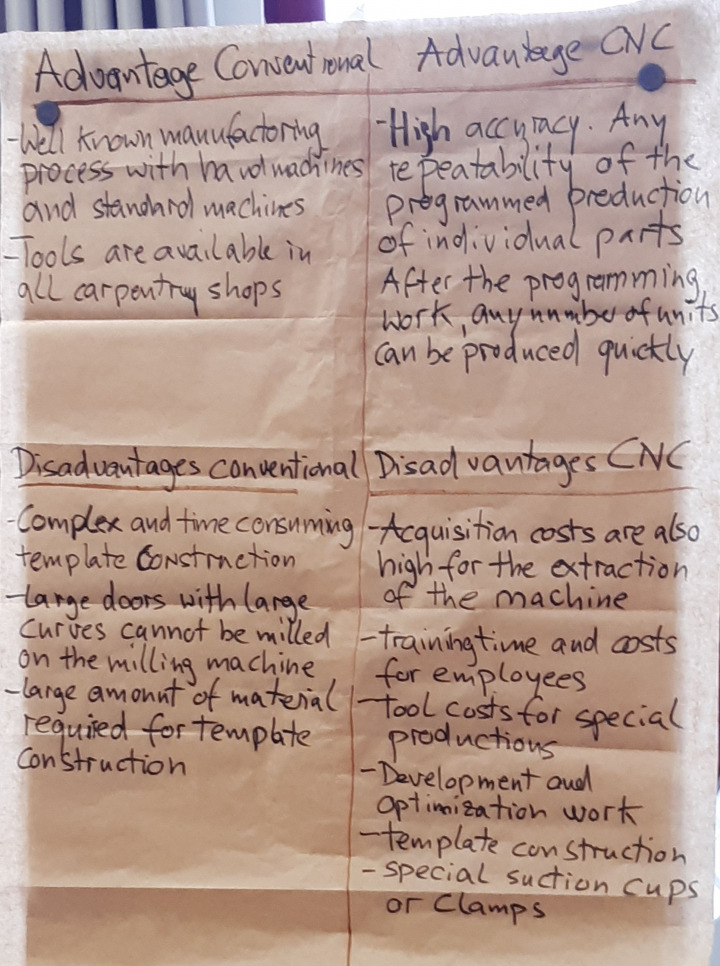 Advantage Conventional
-Well known manufactoring
process with handmachines
and standard machines
-Tools are available in
all carpentry shops
Advantage CNC
-High accuracy. Any
repeatability of the
programmed production
of individual parts
After the programming,
work, any number of units
can be produced quickly
Disadvantages conventional
-Complex and time consuming
template construction
-Large doors with large
curves cannot be milled
on the milling machine
-large amount of material
required for template
construction
Disadvantages CNC
-Acquisition costs are also
high for the extraction
of the machine
-training time and costs
for employees
-Tool costs for special
productions
-Development and
optimization work
-template construction
-special suction cups
or clamps